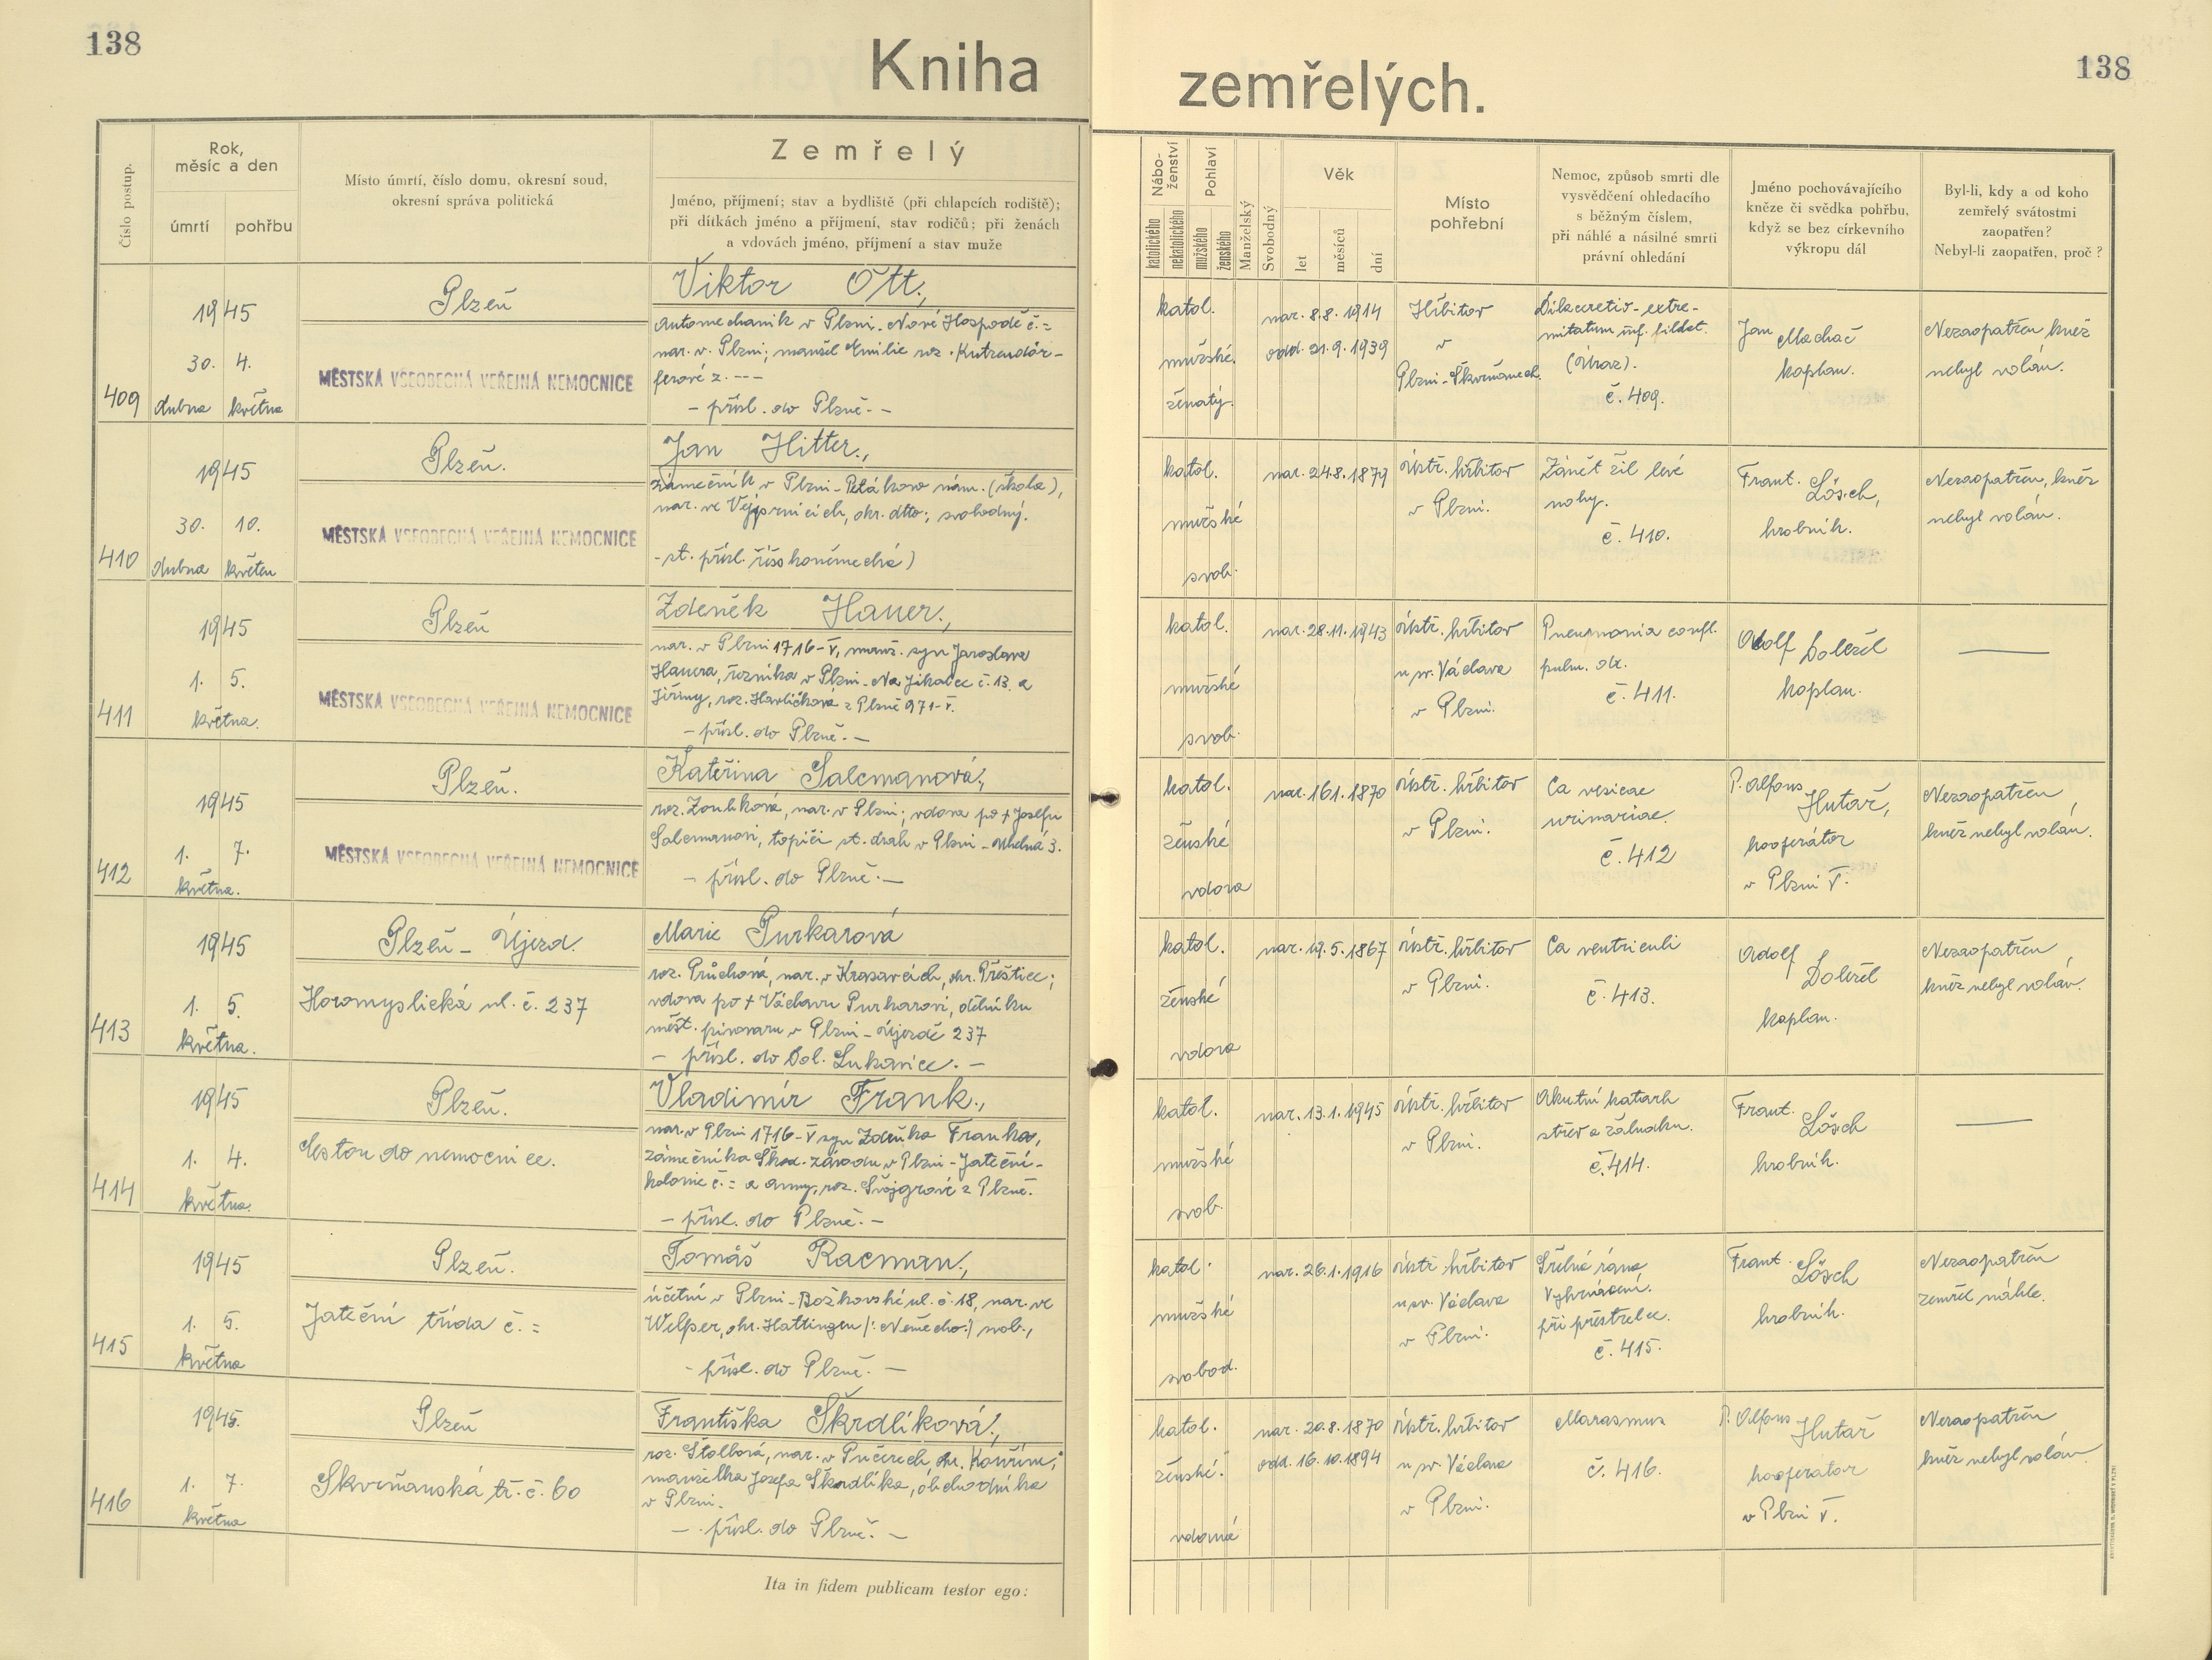 138
Kniha zemřelých.
138
Číslo postup.
Rok,
měsíc a den
úmrtí
pohřbu
Místo úmrtí, číslo domu, okresní soud,
okresní správa politická
Zemřelý
Jméno, příjmení; stav a bydliště (při chlapcích rodiště);
při dítkách jméno a příjmení, stav rodičů; při ženách
a vdovách jméno, příjmení a stav muže
Nábo-
ženství
katolického
nekatolického
Pohlaví
mužského
ženského
Manželský
Svobodný
Věk
let
měsíců
dní
Místo
pohřební
Nemoc, způsob smrti dle
vysvědčení ohledacího
s běžným číslem,
při náhlé a násilné smrti
právní ohledání
Jméno pochovávajícího
kněze či svědka pohřbu,
když se bez církevního
výkropu dál
Byl-li, kdy a od koho
zemřelý svátostmi
zaopatřen?
Nebyl-li zaopatřen, proč ?
409
1945
30. 4.
dubna května
Plzeň
MĚSTSKÁ VŠEOBECNÁ VEŘEJNÁ NEMOCNICE
Viktor Ott.,
automechanik v Plzni-Nové Hospodě č.=
nar. v Plzni; manžel Emilie roz.
ferové z.---
- přísl. do Plzně.-
katol.
mužské.
ženatý.
nar. 8.8. 1914
odd. 21.9. 1939
Hřbitov
v
Plzni-Skvrňanech.
extre-
mitatum inf.
(Úraz).
č. 409.
Jan Machač
kaplan.
Nezaopatřen kněz
nebyl volán.
410
1945
30. 10.
dubna květen
Plzeň.
MĚSTSKÁ VŠEOBECNÁ VEŘEJNÁ NEMOCNICE
Jan Hitter.,
zámečník v Plzni-Petákovo nám. (škola),
nar. ve Vejprnicích, okr. dtto; svobodný.
-st. přísl. říšskoněmecká)
katol.
mužské
svob.
nar. 24.8. 1879
ústř. hřbitov
v Plzni.
Zánět žil levé
nohy.
č. 410.
Frant. Lösch,
hrobník.
Nezaopatřen, kněz
nebyl volán.
411
1945
1. 5.
května.
Plzeň
MĚSTSKÁ VŠEOBECNÁ VEŘEJNÁ NEMOCNICE
Zdeněk Hauer.,
nar. v Plzni 1716-V, manž. syn Jaroslava
Hauera, řezníka v Plzni-Na Jíkalce č. 13. a
Jiřiny, roz. Havlíčková z Plzně 971-V.
- přísl. do Plzně.-
katol.
mužské
svob.
nar. 28.11. 1943
ústř. hřbitov
u sv. Václava
v Plzni.
Pneumonia confl.
pulm. dx.
č. 411.
Adolf Doležel
kaplan.
412
1945
1. 7.
května.
Plzeň.
MĚSTSKÁ VŠEOBECNÁ VEŘEJNÁ NEMOCNICE
Kateřina Salcmanová.,
roz. Zoubková, nar. v Plzni; vdova po + Josefu
Salcmanovi, topiči st. drah v Plzni - Uhelná 3.
- přísl. do Plzně.-
katol.
ženské
vdova
nar. 16.1. 1870
ústř. hřbitov
v Plzni.
Ca vesicae
urinariae.
č. 412
P. Alfons Hutař,
kooperátor
v Plzni V.
Nezaopatřen
kněz nebyl volán.
413
1945
1. 5.
května.
Plzeň - Újezd.
Horomyslická ul. č. 237
Marie Purkarová
roz. Průchová, nar. v Krasavcích, okr. Přeštice;
vdova po + Václavu Purkarovi, dělníku
měst. pivovaru v Plzni-Újezdě 237
- přísl. do Dol. Lukavice. -
katol.
ženské
vdova
nar. 19.5. 1867
ústř. hřbitov
v Plzni.
Ca ventriculi
č. 413.
Adolf Doležel
kaplan.
Nezaopatřen
kněz nebyl volán.
414
1945
1. 4.
května.
Plzeň.
Cestou do nemocnice.
Vladimír Frank.,
nar. v Plzni 1716-V syn Zdeňka Franka,
zámečníka Škod. závodu v Plzni-Jateční-
kolonie č.= a Anny, roz. Švojgrové z Plzně.
- přísl. do Plzně.-
katol.
mužské
svob.
nar. 13.1. 1945
ústř. hřbitov
v Plzni.
Akutní katarh
střev a žaludku.
č. 414.
Frant. Lösch
hrobník.
415
1945
1. 5.
května
Plzeň.
Jateční třída č. =
Tomáš Racman.,
účetní v Plzni-Božkovské ul. č. 18, nar. ve
Welper, okr. Hattingen /: Německo:/ svob.,
- přísl. do Plzně. -
katol.
mužské
svobod.
nar. 26.1. 1916
ústř. hřbitov
u sv. Václava
v Plzni.
Střelná rána
Vykrvácení.
při přestřelce.
č. 415.
Frant. Lösch
hrobník.
Nezaopatřen
zemřel náhle.
416
1945.
1. 7.
května
Plzeň
Skvrňanská tř. č. 60
Františka Škrdlíková.,
roz. Štolbová, nar. v Pučerech, okr. Kouřim;
manželka Josefa Škrdlíka, obchodníka
v Plzni.
- přísl. do Plzně. -
katol.
ženské.
vdaná
nar. 20.8. 1870
odd. 16.10. 1894
ústř. hřbitov
u sv. Václava
v Plzni.
Marasmus
č. 416.
P. Alfons Hutař
kooperator
v Plzni V.
Nezaopatřen
kněz nebyl volán
Ita in fidem publicam testor ego: